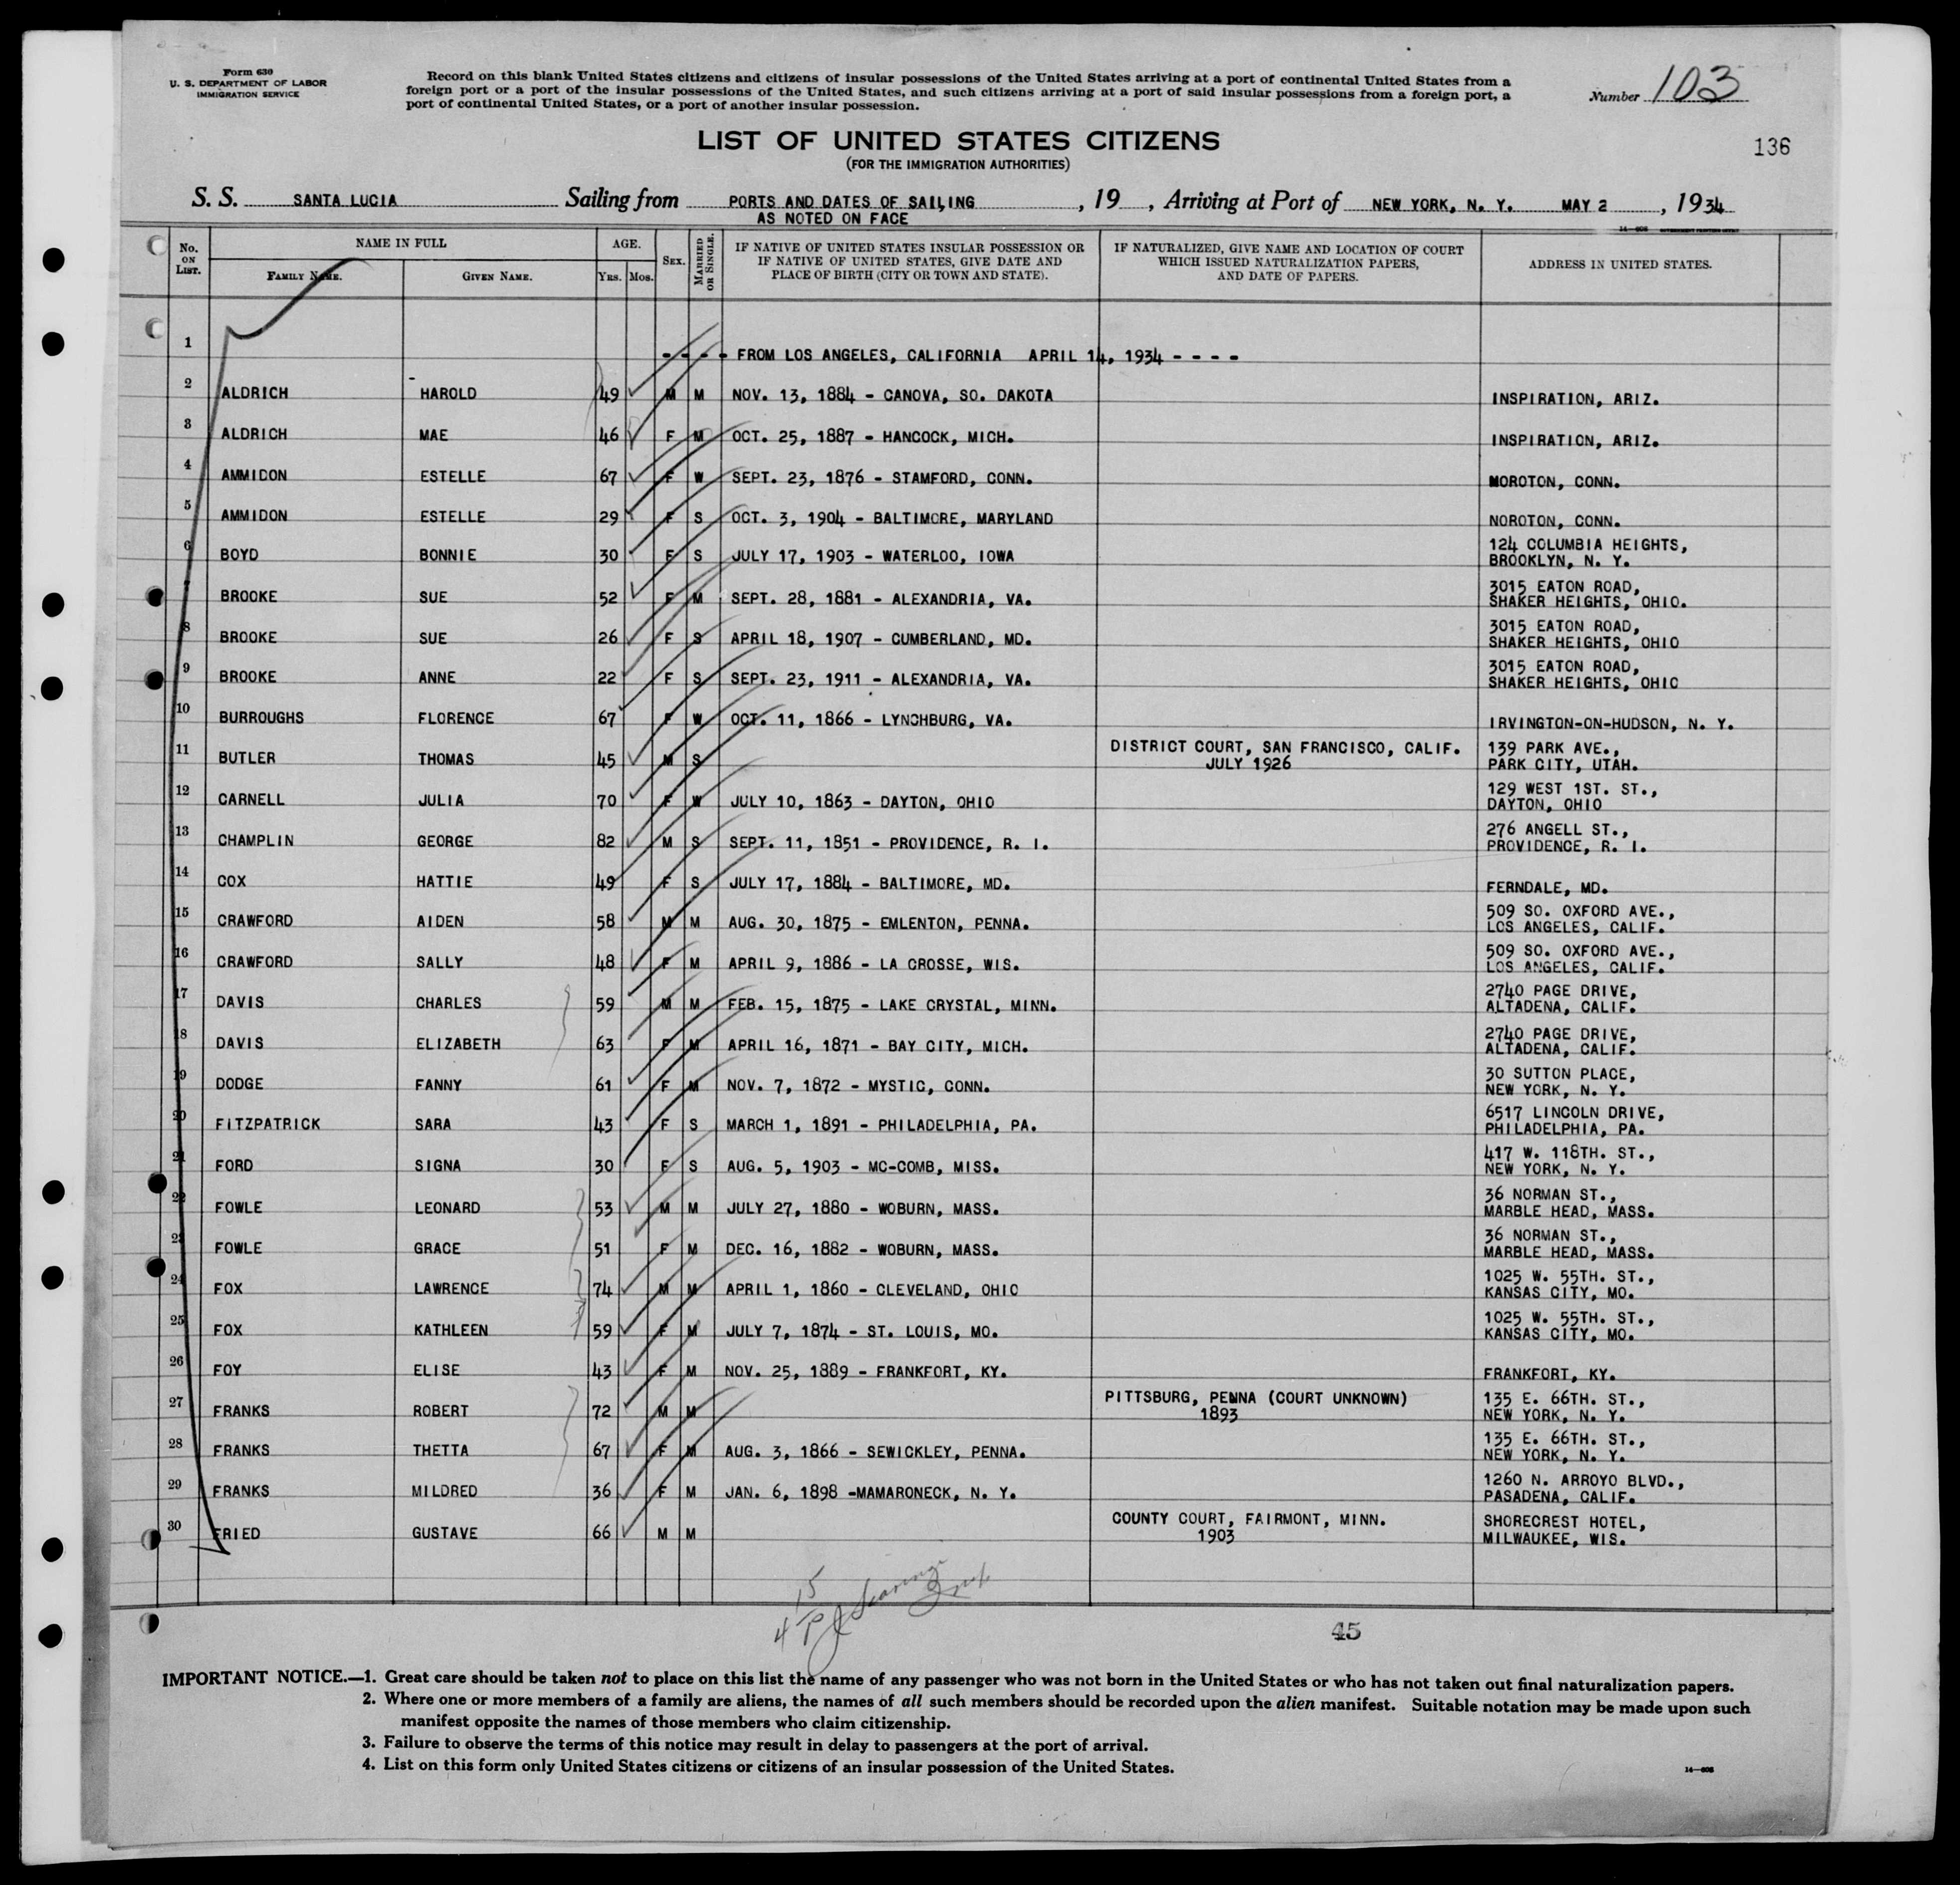 Form 630
U. S. DEPARTMENT OF LABOR
IMMIGRATION SERVICE
Record on this blank United States citizens and citizens of insular possessions of the United States arriving at a port of continental United States from a
foreign port or a port of the insular possessions of the United States, and such citizens arriving at a port of said insular possessions from a foreign port, a
port of continental United States, or a port of another insular possession.
Number 103
LIST OF UNITED STATES CITIZENS
(FOR THE IMMIGRATION AUTHORITIES)
136
S. S. SANTA LUCIA Sailing from PORTS AND DATES OF SAILING , 19 , Arriving at Port of NEW YORK, N. Y. MAY 2 , 1934
AS NOTED ON FACE
No. ON LIST. NAME IN FULL AGE. SEX. MARRIED OR SINGLE. IF NATIVE OF UNITED STATES INSULAR POSSESSION OR IF NATIVE OF UNITED STATES, GIVE DATE AND PLACE OF BIRTH (CITY OR TOWN AND STATE). IF NATURALIZED, GIVE NAME AND LOCATION OF COURT WHICH ISSUED NATURALIZATION PAPERS, AND DATE OF PAPERS. ADDRESS IN UNITED STATES.
FAMILY NAME. GIVEN NAME. YRS. MOS.
1 - - - - FROM LOS ANGELES, CALIFORNIA APRIL 14, 1934 - - - -
2 ALDRICH HAROLD 49 M M NOV. 13, 1884 - CANOVA, SO. DAKOTA INSPIRATION, ARIZ.
3 ALDRICH MAE 46 F M OCT. 25, 1887 - HANCOCK, MICH. INSPIRATION, ARIZ.
4 AMMIDON ESTELLE 67 F W SEPT. 23, 1876 - STAMFORD, CONN. MOROTON, CONN.
5 AMMIDON ESTELLE 29 F S OCT. 3, 1904 - BALTIMORE, MARYLAND NOROTON, CONN.
6 BOYD BONNIE 30 F S JULY 17, 1903 - WATERLOO, IOWA 124 COLUMBIA HEIGHTS,
BROOKLYN, N. Y.
7 BROOKE SUE 52 F M SEPT. 28, 1881 - ALEXANDRIA, VA. 3015 EATON ROAD,
SHAKER HEIGHTS, OHIO.
8 BROOKE SUE 26 F S APRIL 18, 1907 - CUMBERLAND, MD. 3015 EATON ROAD,
SHAKER HEIGHTS, OHIO
9 BROOKE ANNE 22 F S SEPT. 23, 1911 - ALEXANDRIA, VA. 3015 EATON ROAD,
SHAKER HEIGHTS, OHIO
10 BURROUGHS FLORENCE 67 F W OCT. 11, 1866 - LYNCHBURG, VA. IRVINGTON-ON-HUDSON, N. Y.
11 BUTLER THOMAS 45 M S DISTRICT COURT, SAN FRANCISCO, CALIF. 139 PARK AVE.,
JULY 1926 PARK CITY, UTAH.
12 CARNELL JULIA 70 F W JULY 10, 1863 - DAYTON, OHIO 129 WEST 1ST. ST.,
DAYTON, OHIO
13 CHAMPLIN GEORGE 82 M S SEPT. 11, 1851 - PROVIDENCE, R. I. 276 ANGELL ST.,
PROVIDENCE, R. I.
14 COX HATTIE 49 F S JULY 17, 1884 - BALTIMORE, MD. FERNDALE, MD.
15 CRAWFORD AIDEN 58 M M AUG. 30, 1875 - EMLENTON, PENNA. 509 SO. OXFORD AVE.,
LOS ANGELES, CALIF.
16 CRAWFORD SALLY 48 F M APRIL 9, 1886 - LA CROSSE, WIS. 509 SO. OXFORD AVE.,
LOS ANGELES, CALIF.
17 DAVIS CHARLES 59 M M FEB. 15, 1875 - LAKE CRYSTAL, MINN. 2740 PAGE DRIVE,
ALTADENA, CALIF.
18 DAVIS ELIZABETH 63 F M APRIL 16, 1871 - BAY CITY, MICH. 2740 PAGE DRIVE,
ALTADENA, CALIF.
19 DODGE FANNY 61 F M NOV. 7, 1872 - MYSTIC, CONN. 30 SUTTON PLACE,
NEW YORK, N. Y.
20 FITZPATRICK SARA 43 F S MARCH 1, 1891 - PHILADELPHIA, PA. 6517 LINCOLN DRIVE,
PHILADELPHIA, PA.
21 FORD SIGNA 30 F S AUG. 5, 1903 - MC-COMB, MISS. 417 W. 118TH. ST.,
NEW YORK, N. Y.
22 FOWLE LEONARD 53 M M JULY 27, 1880 - WOBURN, MASS. 36 NORMAN ST.,
MARBLE HEAD, MASS.
23 FOWLE GRACE 51 F M DEC. 16, 1882 - WOBURN, MASS. 36 NORMAN ST.,
MARBLE HEAD, MASS.
24 FOX LAWRENCE 74 M M APRIL 1, 1860 - CLEVELAND, OHIO 1025 W. 55TH. ST.,
KANSAS CITY, MO.
25 FOX KATHLEEN 59 F M JULY 7, 1874 - ST. LOUIS, MO. 1025 W. 55TH. ST.,
KANSAS CITY, MO.
26 FOY ELISE 43 F M NOV. 25, 1889 - FRANKFORT, KY. FRANKFORT, KY.
27 FRANKS ROBERT 72 M M PITTSBURG, PENNA (COURT UNKNOWN) 135 E. 66TH. ST.,
1893 NEW YORK, N. Y.
28 FRANKS THETTA 67 F M AUG. 3, 1866 - SEWICKLEY, PENNA. 135 E. 66TH. ST.,
NEW YORK, N. Y.
29 FRANKS MILDRED 36 F M JAN. 6, 1898 -MAMARONECK, N. Y. 1260 N. ARROYO BLVD.,
PASADENA, CALIF.
30 FRIED GUSTAVE 66 M M COUNTY COURT, FAIRMONT, MINN. SHORECREST HOTEL,
1903 MILWAUKEE, WIS.
15
4
45
IMPORTANT NOTICE.—1. Great care should be taken not to place on this list the name of any passenger who was not born in the United States or who has not taken out final naturalization papers.
2. Where one or more members of a family are aliens, the names of all such members should be recorded upon the alien manifest. Suitable notation may be made upon such
manifest opposite the names of those members who claim citizenship.
3. Failure to observe the terms of this notice may result in delay to passengers at the port of arrival.
4. List on this form only United States citizens or citizens of an insular possession of the United States.